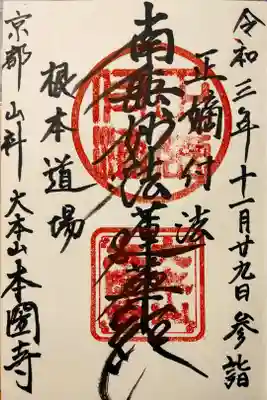 令和三年十一月廿九日参詣
正嫡付法
南無妙法蓮華経
根本道場
京都山科大本山本圀寺